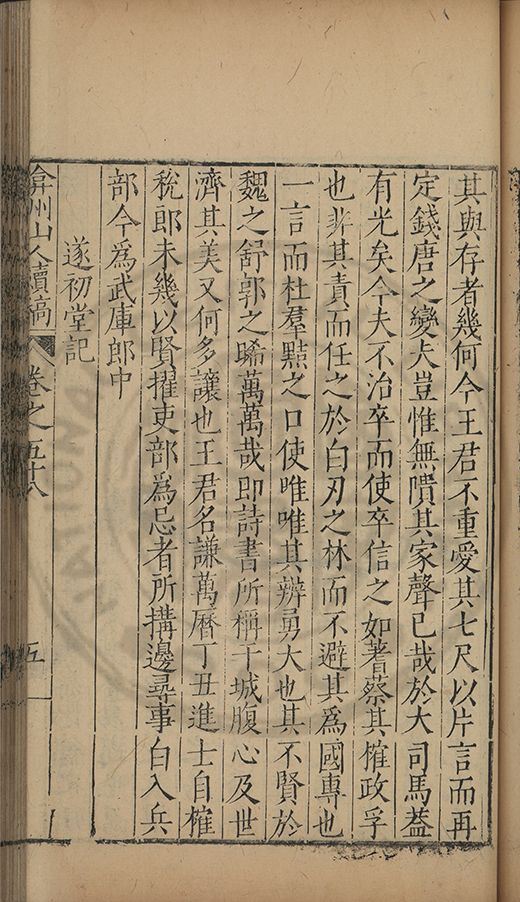 其與存者幾何今王君不重愛其七尺以片言而再
定錢唐之變夫豈惟無隤其家聲已哉於大司馬葢
有光矣今夫不治卒而使卒信之如蓍蔡其榷政孚
也非其責而任之於白刃之林而不避其為國專也
一言而杜羣黠之口使唯唯其辨勇大也其不賢於
魏之舒郭之晞萬萬哉即詩書所稱干城腹心及世
濟其美又何多讓也王君名謙萬曆丁丑進士自榷
稅郎未幾以賢擢吏部為忌者所搆邊尋事白入兵
部今為武庫郎中
遂初堂記
弇州山人續稿
卷之五十八
五